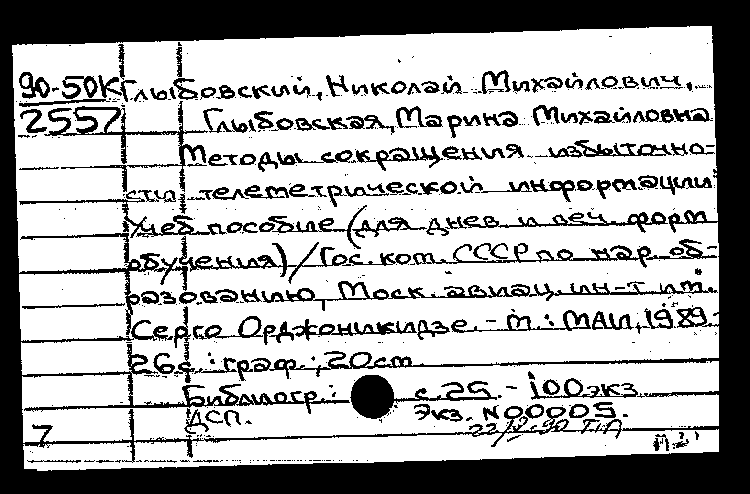 90-50К Глыбовский, Николай Михайлович,
2557 Глыбовская, Марина Михайловна
Методы сокращения избыточно-
сти телеметрической информации:
Учеб пособие (для днев. и веч. форм
обучения) / Гос. ком. СССР по нар. об-
разованию, Моск. авиац. ин-т им.
Серго Орджоникидзе. - М.: МАИ, 1989.-
26 с.: граф.; 20 см
Библиогр.: с. 25. - 100 экз
ДСП. Экз. N00005.
7 22/V-90